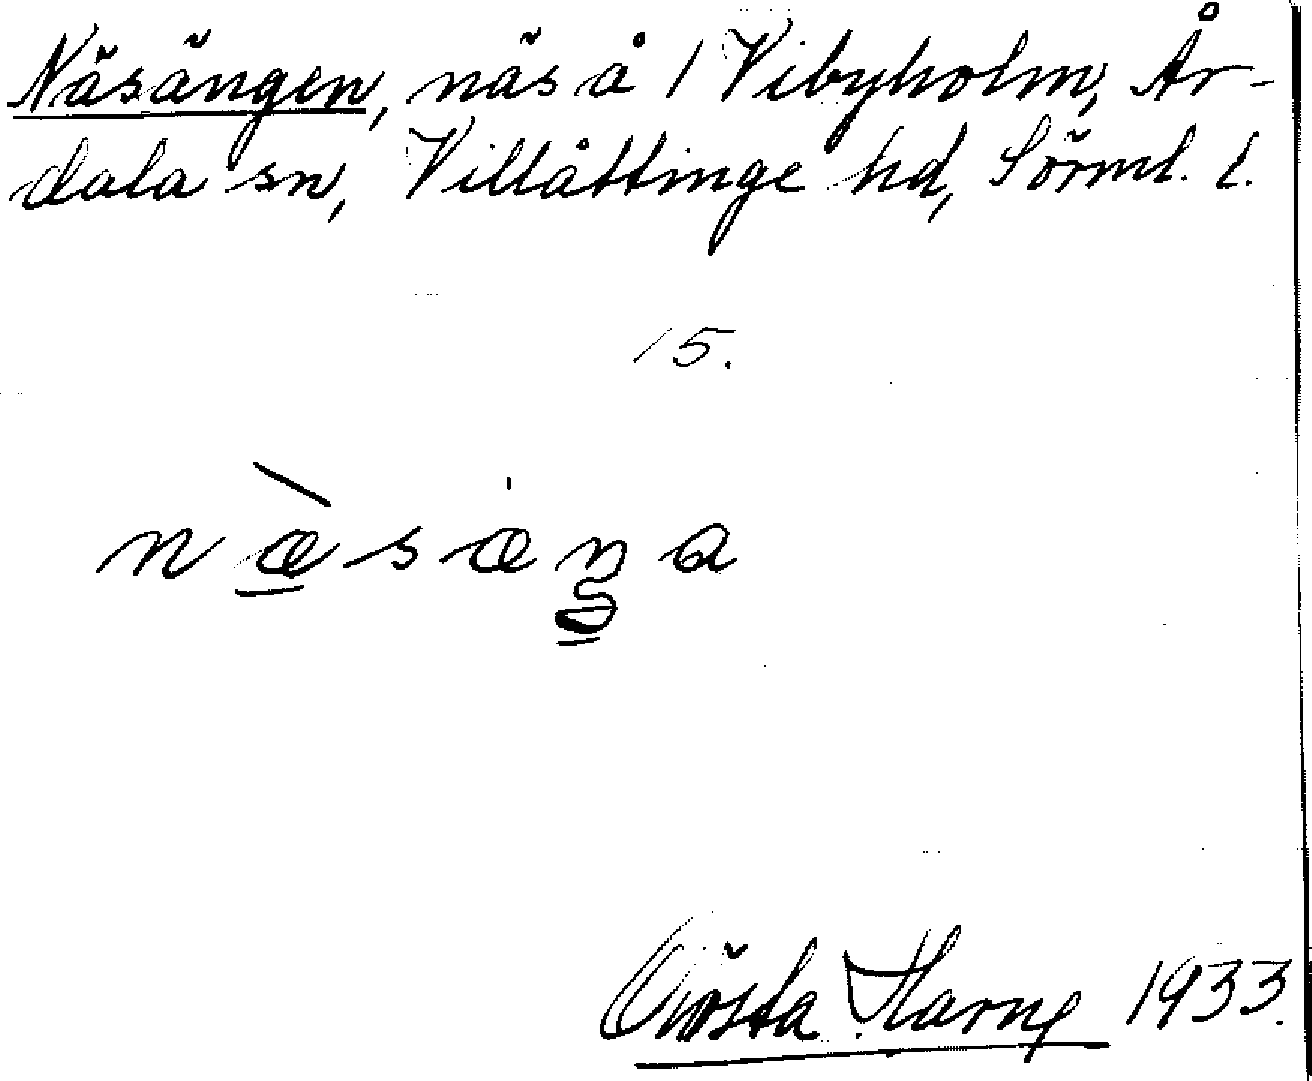 Näsängen, näs å / Vibyholm, År-
dala sn, Villåttinge hd, Sörml. l.
15.
næ̀sæŋa
Gösta Harne 1933.